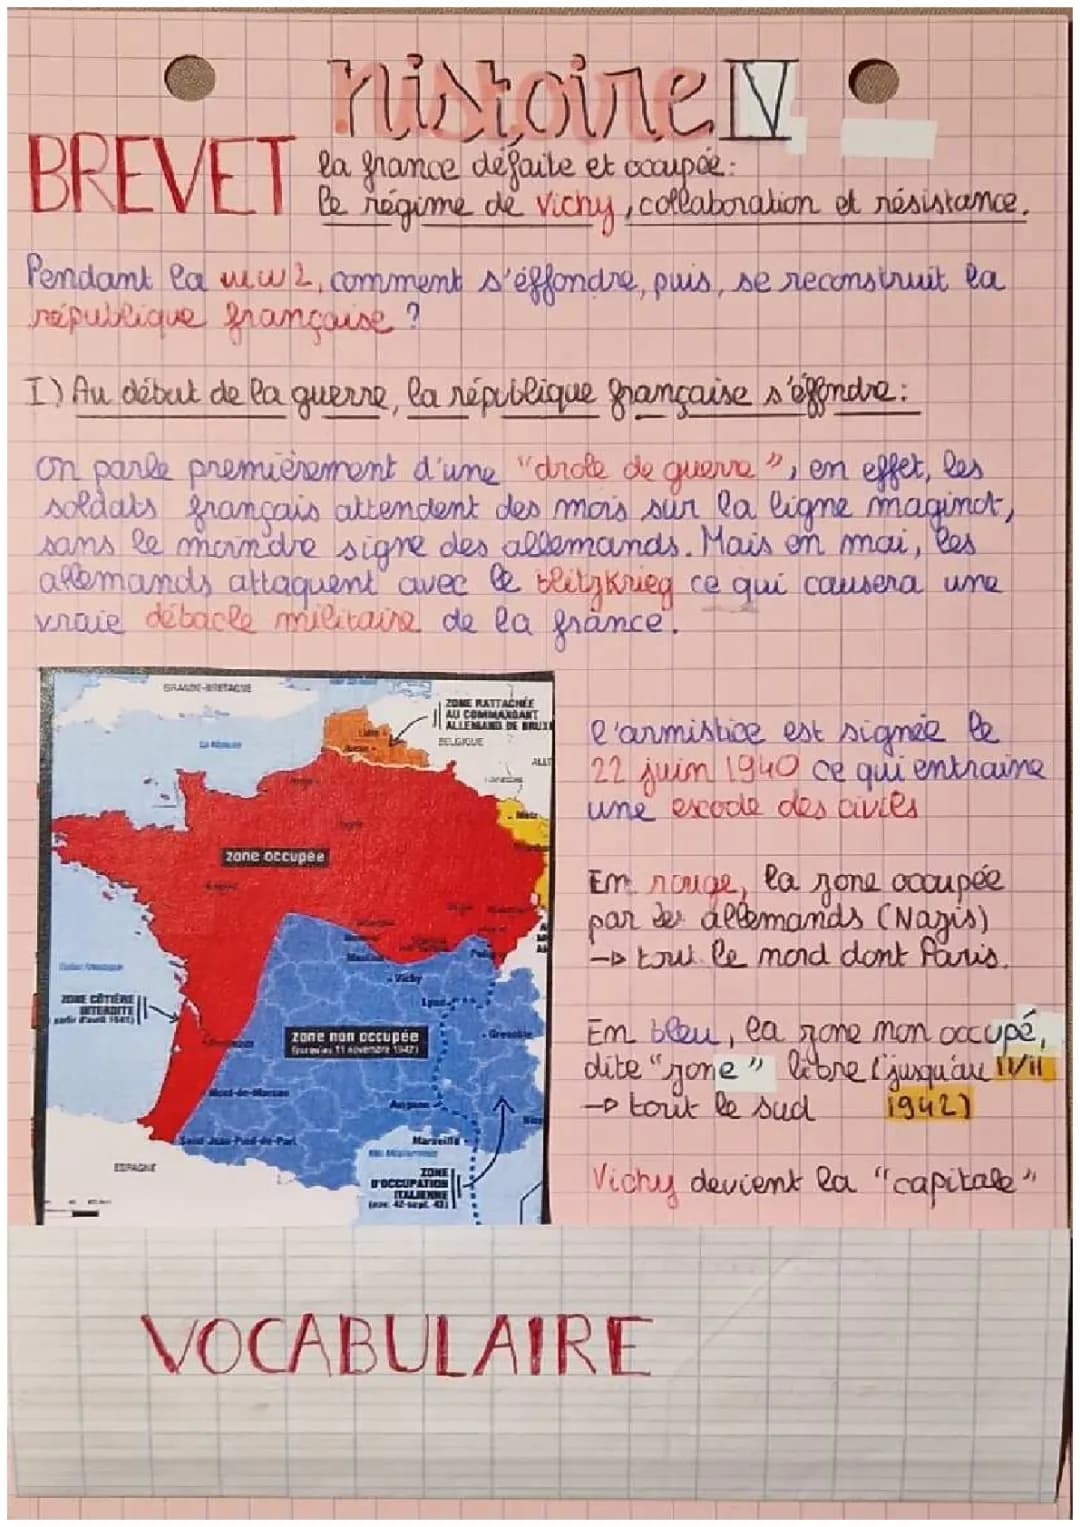 histoire IV
BREVET
la france défaite et occupée:
le régime de Vichy, collaboration et résistance.
Pendant la ww2, comment s'éffondre, puis, se reconstruit la
république française ?
I) Au début de la guerre, la république française s'éffondre:
On parle premièrement d'une "drole de guerre", en effet, les
soldats français attendent des mois sur la ligne maginot,
sans le moindre signe des allemands. Mais en mai, les
allemands attaquent avec le blitzkrieg ce qui causera une
vraie débacle militaire de la france.
GRANDE-BRETAGNE
ZONE RATTACHÉE
AU COMMANDANT
ALLEMAND DE BRUX
BELGIQUE
La Manche
Lille
Metz
zone occupée
Vichy
Lyon
ZONE CÔTIÈRE
INTERDITE
zone non occupée
(jusqu'au 11 novembre 1942)
Grenoble
Mont-de-Marsan
Avignon
Nice
Saint-Jean-Pied-de-Port
Marseille
ESPAGNE
ZONE
D'OCCUPATION
ITALIENNE
(nov. 42-sept. 43)
l'armistice est signée le
22 juin 1940 ce qui entraine
une exode des civils
En rouge, la zone occupée
par les allemands (Nazis)
→ tout le nord dont Paris.
En bleu, la zone non occupé,
dite "zone" libre (jusqu'au 11/11
1942)
→ tout le sud
Vichy devient la "capitale"
VOCABULAIRE